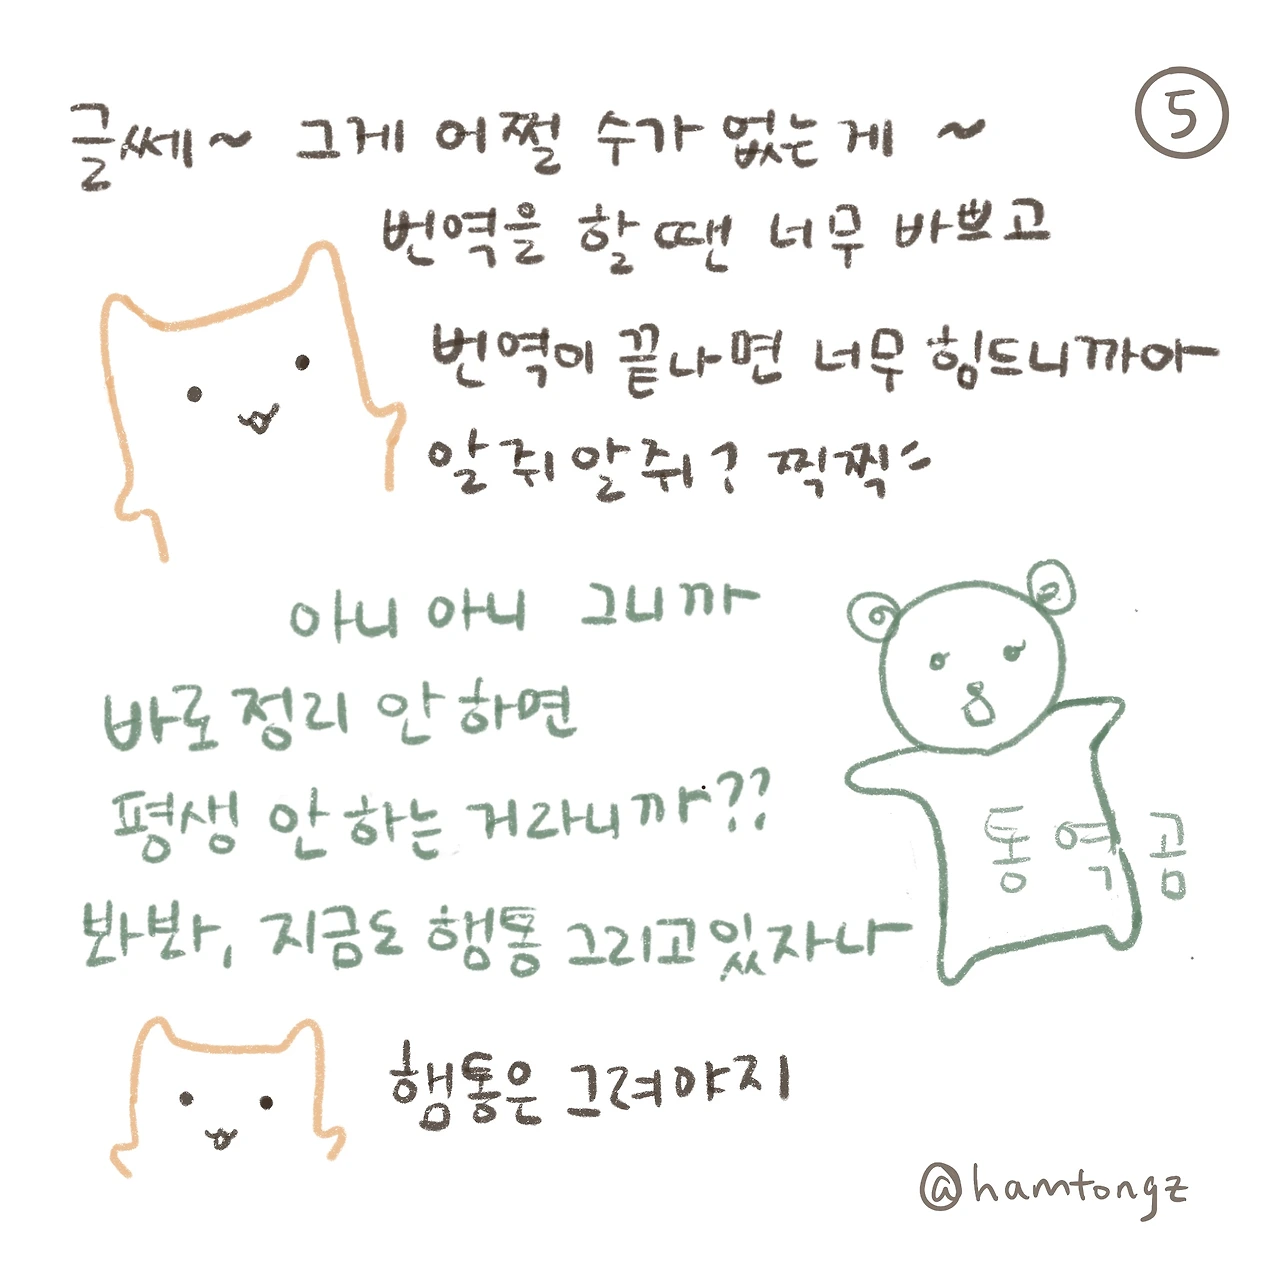 5
글쎄~ 그게 어쩔 수가 없는 게 ~
번역을 할 땐 너무 바쁘고
번역이 끝나면 너무 힘드니까아
알쥐알쥐? 찍찍^^
아니 아니 그니까
바로 정리 안 하면
평생 안 하는 거라니까??
봐봐, 지금도 햄통 그리고 있자나
통역곰
햄통은 그려야지
@hamtongz